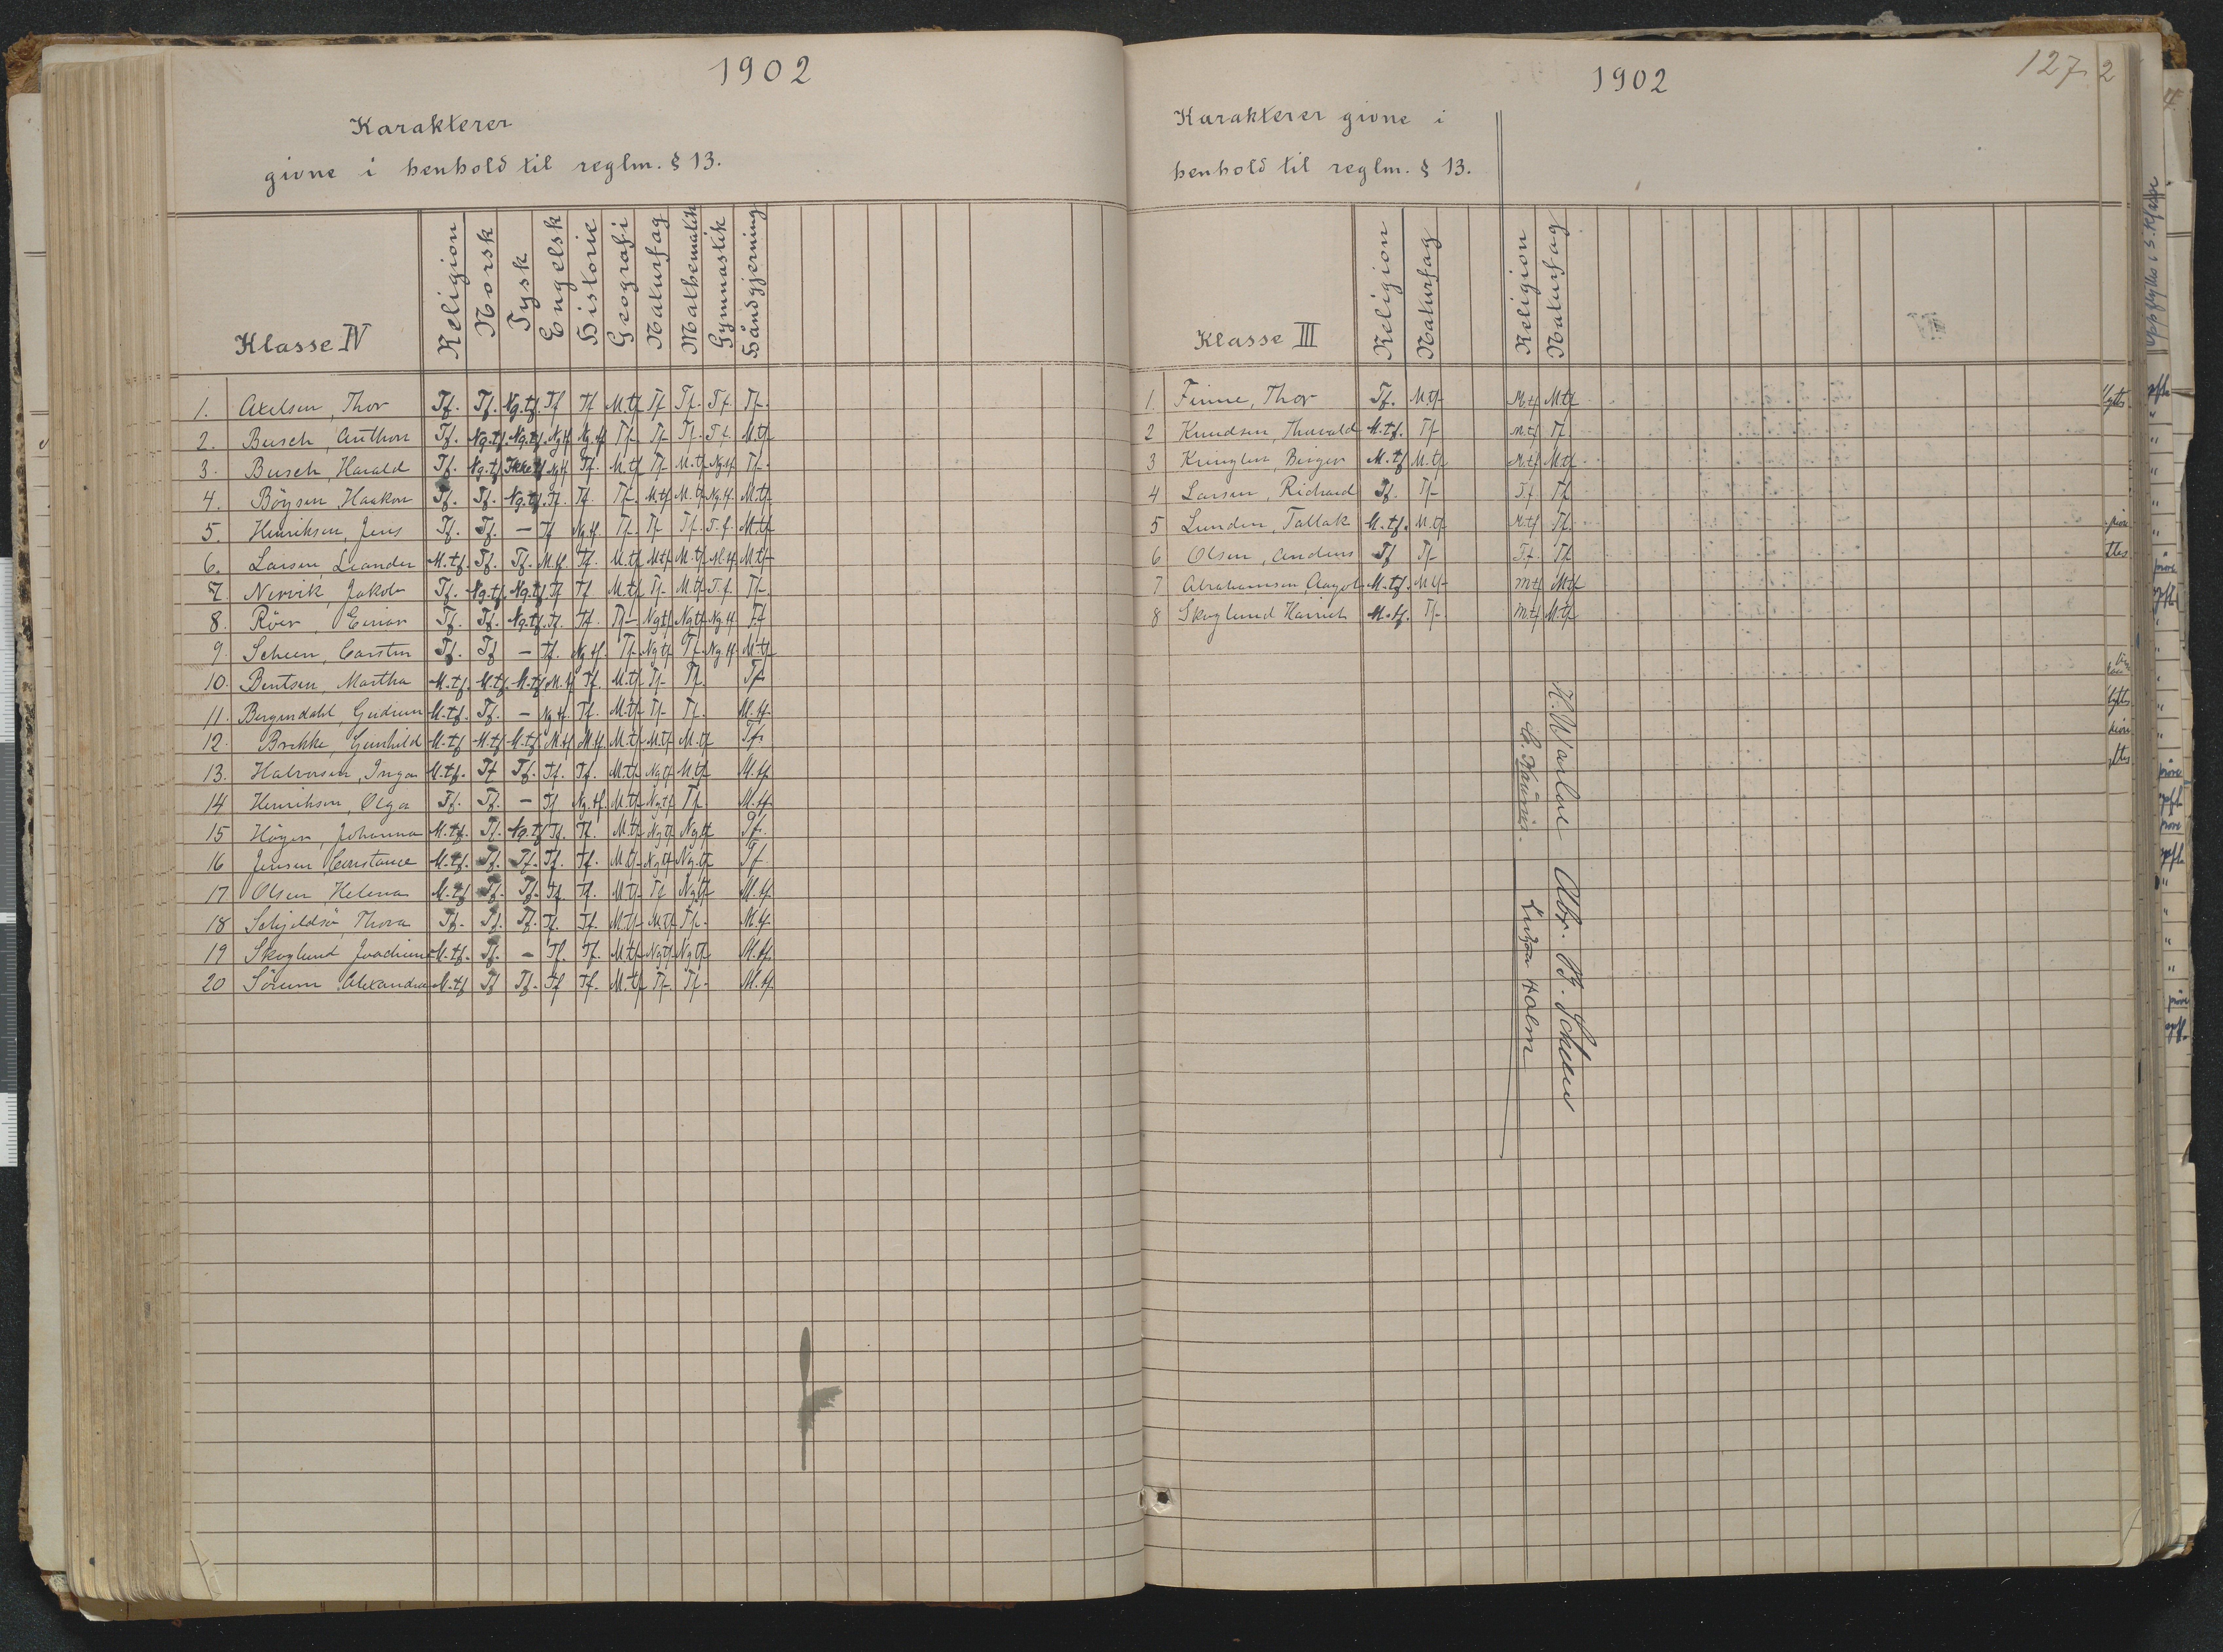 1902
Karakterer
givne i henhold til reglm. § 13.
Klasse IV Religion Norsk Tysk Engelsk Historie Geografi Naturfag Mathematik Gymnastik Håndgjerning
1. Axelsen, Thor Tf. Tf. Ng.tf. Tf Tf M.tf Tf Tf. Tf. Tf.
2. Busch, Anthon Tf. Ng.tf. Ng.tf. Ng.tf Ng.tf Tf Tf Tf. Tf. M.tf
3. Busch, Harald Tf. Ng.tf Ikke tf Ng.tf Tf. M.tf Tf M.tf Ng.tf Tf.
4. Böysen, Haakon Tf. Tf. Ng.tf. Tf. Tf. Tf. M.tf M.tf Ng.tf. M.tf
5. Henriksen, Jens Tf. Tf. – Tf Ng.tf. Tf. Tf Tf. T.f. M.tf
6. Larsen, Leander M.tf. Tf. Tf. M.tf. Tf. M.tf M.tf M.tf M.tf M.tf
7. Nervik, Jakob Tf. Ng.tf. Ng.tf. Tf Tf M.tf Tf M.tf T.f. Tf.
8. Röer, Einar Tf. Tf. Ng.tf. Tf. Tf. Tf Ng.tf Ng.tf Ng.tf Tf
9. Scheen, Carsten Tf. Tf – Tf. Ng.tf. Tf Ng.tf Tf. Ng.tf. M.tf
10. Bentsen, Martha M.tf. M.tf. M.tf. M.tf Tf. M.tf Tf Tf. Tf
11. Bergendahl, Gudrun M.tf. Tf. – Ng.tf. Tf. M.tf Tf Tf. M.tf.
12. Brekke, Gunhild M.tf M.tf M.tf M.tf M.tf M.tf M.tf M.tf Tf.
13. Halvorsen, Inga M.tf. Tf Tf. Tf. Tf. M.tf Ng.tf M.tf M.tf.
14 Henriksen, Olga Tf. Tf. – Tf Ng.tf. M.tf Ng.tf Tf. M.tf.
15 Höyer, Johanna M.tf. Tf. Ng.tf Tf. Tf. M.tf Ng.tf Ng.tf Tf.
16 Jensen, Constance M.tf. Tf. Tf. Tf. Tf. M.tf Ng.tf Ng.tf Tf
17 Olsen, Helena M.tf Tf. Tf. Tf Tf. M.tf Tf Ng.tf M.tf.
18 Schjeldsö, Thora Tf. Tf. Tf. Tf. Tf. M.tf M.tf Tf. M.tf.
19 Skoglund, Joachime M.tf. Tf. – Tf. Tf. M.tf Ng.tf Ng.tf M.tf.
20 Sörum Alexandra M.tf Tf Tf. Tf Tf. M.tf Tf. Tf. M.tf.
1902
127
2
Karakterer givne i
henhold til reglm. § 13.
Klasse III Religion Naturfag Religion Naturfag
1. Finne, Thor Tf. M.tf. M.tf M.tf
2 Knudsen, Thorvald M.tf. Tf M.tf Tf
3 Kringlen, Birger M.tf M.tf M.tf M.tf
4 Larsen, Richard Tf. Tf Tf Tf
5 Lunden, Tallak M.tf. M.tf M.tf Tf.
6 Olsen, Anders Tf Tf Tf Tf
7 Abrahamsen, Aagot M.tf. M.tf M.tf M.tf
8 Skoglund Harriet M.tf. Tf M.tf M.tf
Abr. B. Scheen
Holm